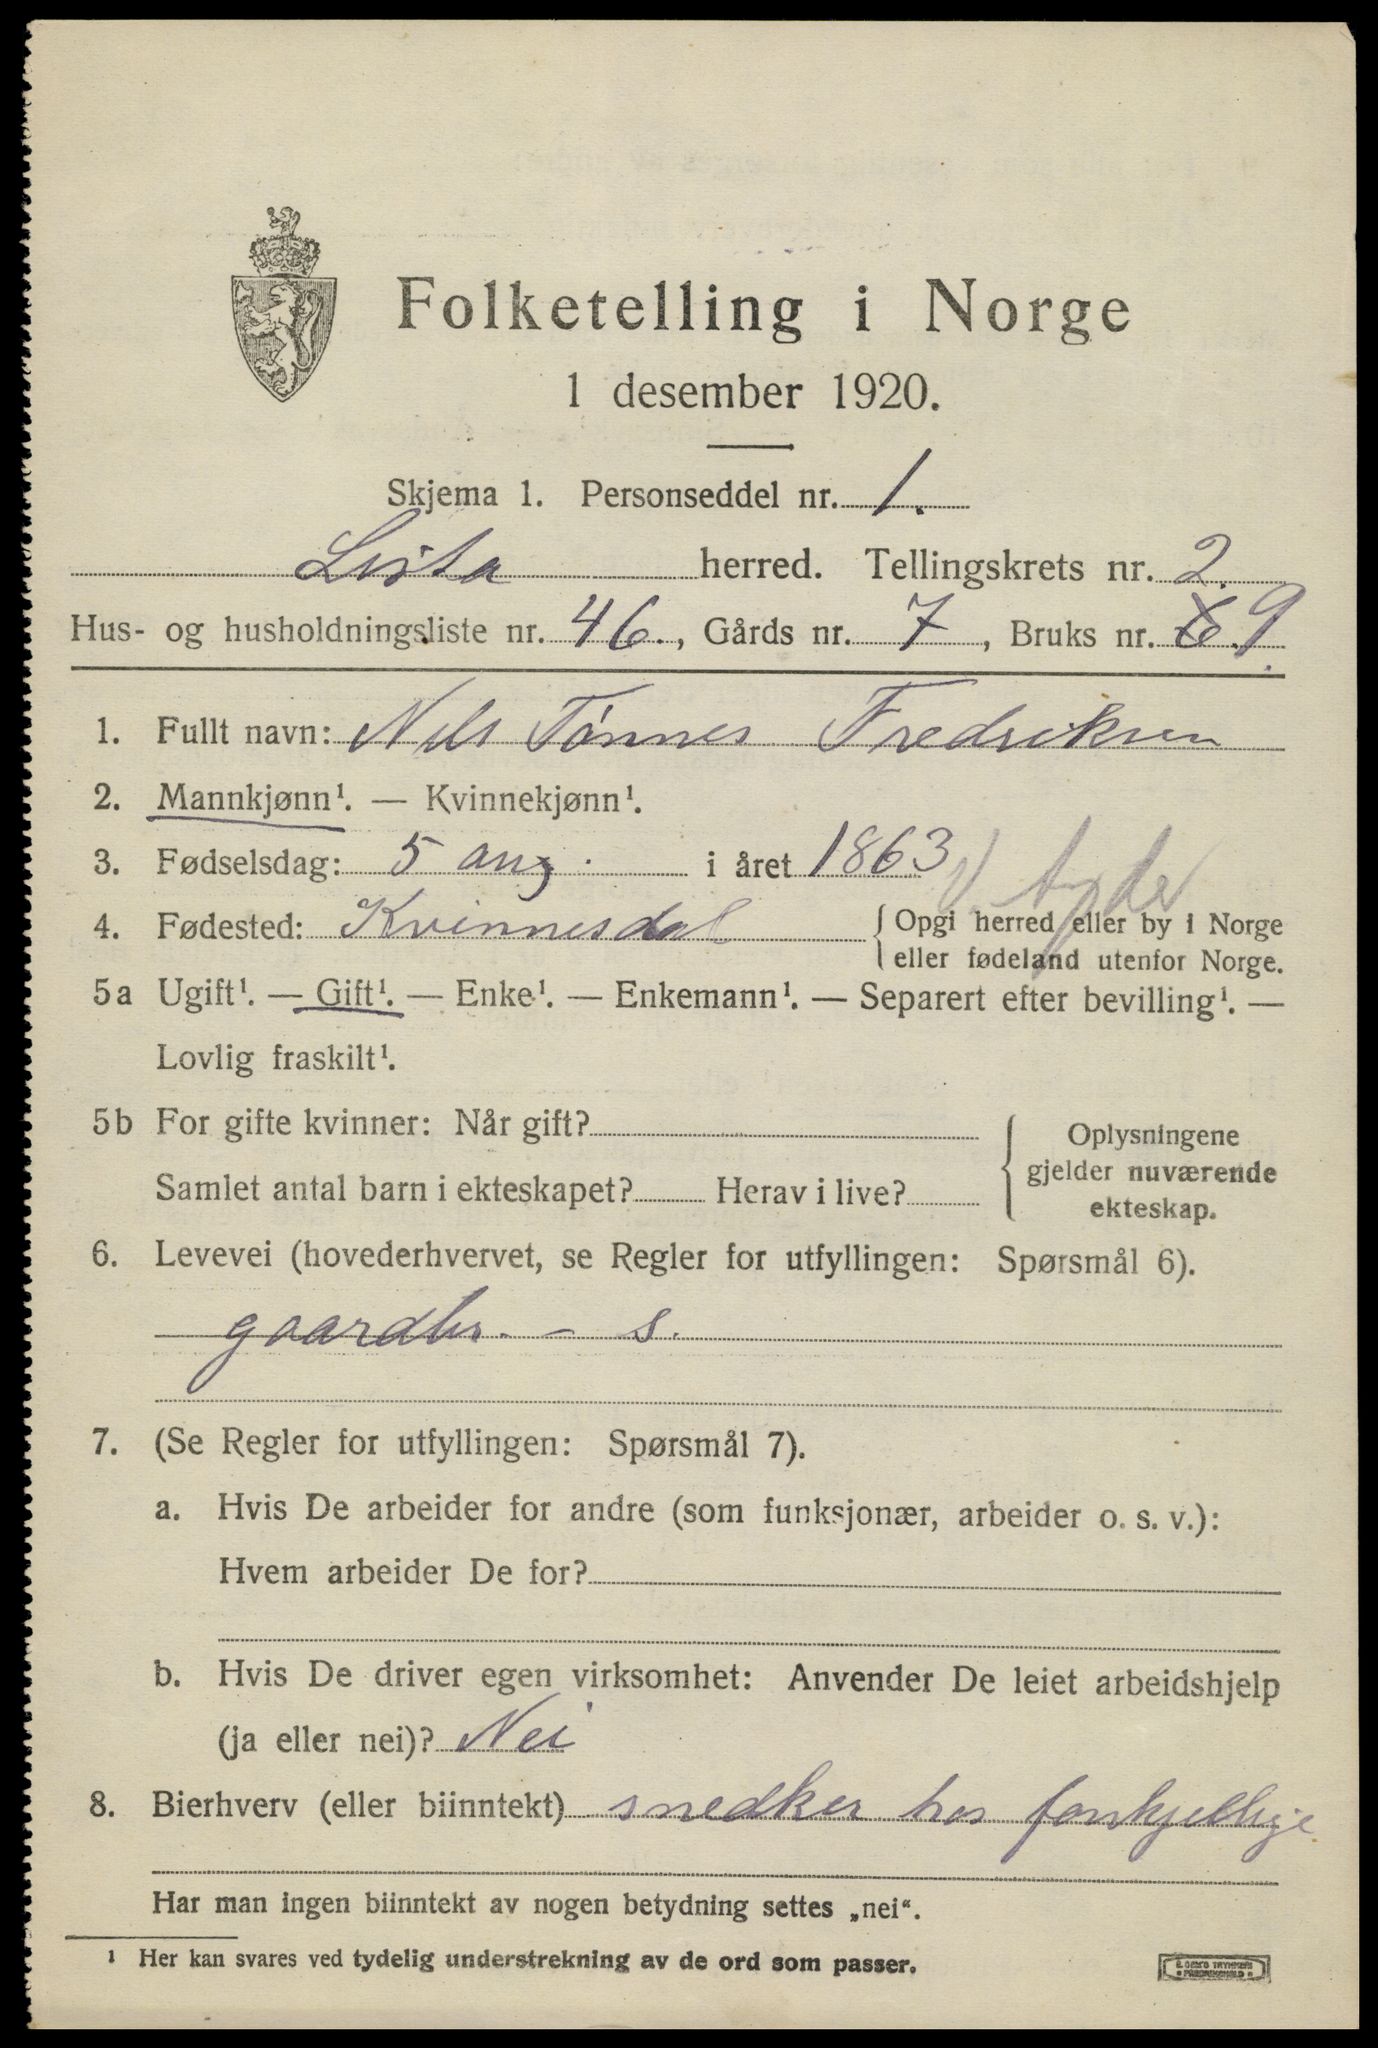 Folketelling i Norge
1 desember 1920.
Skjema 1. Personseddel nr. 1.
Lista herred. Tellingskrets nr. 2.
Hus- og husholdningsliste nr. 46., Gårds nr. 7, Bruks nr. 6 9.
1. Fullt navn: Nils Tønnes Fredriksen
2. Mannkjønn¹. — Kvinnekjønn¹.
3. Fødselsdag: 5 aug. i året 1863
V. Agder
4. Fødested: Kvinnesdal { Opgi herred eller by i Norge
eller fødeland utenfor Norge.
5a Ugift¹. — Gift¹. — Enke¹. — Enkemann¹. — Separert efter bevilling¹. —
Lovlig fraskilt¹.
5b For gifte kvinner: Når gift?
Samlet antal barn i ekteskapet? Herav i live?
{ Oplysningene
gjelder nuværende
ekteskap.
6. Levevei (hovederhvervet, se Regler for utfyllingen: Spørsmål 6).
gaardbr. - s.
7. (Se Regler for utfyllingen: Spørsmål 7).
a. Hvis De arbeider for andre (som funksjonær, arbeider o. s. v.):
Hvem arbeider De for?
b. Hvis De driver egen virksomhet: Anvender De leiet arbeidshjelp
(ja eller nei)? Nei
8. Bierhverv (eller biinntekt) snedker hos forskjellige
Har man ingen biinntekt av nogen betydning settes „nei“.
¹ Her kan svares ved tydelig understrekning av de ord som passer.